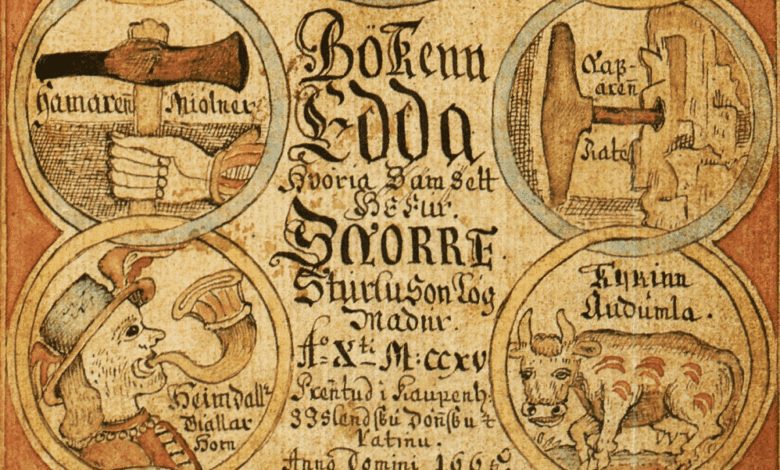 Hamaren̄ Miölner
Bökenn
Edda
Hvoria Samsett
Hefur.
SNORRE
Sturluson Log
Madur.
Aº Xti M:CCXV
Prentud i Kaupenh:
Islendsku Dön̄sku &
Latinu.
Anno Domini 1665
Nafarēn
Rate
Heimdallr
Giallar
Horn
Kyrinn
Audumla.